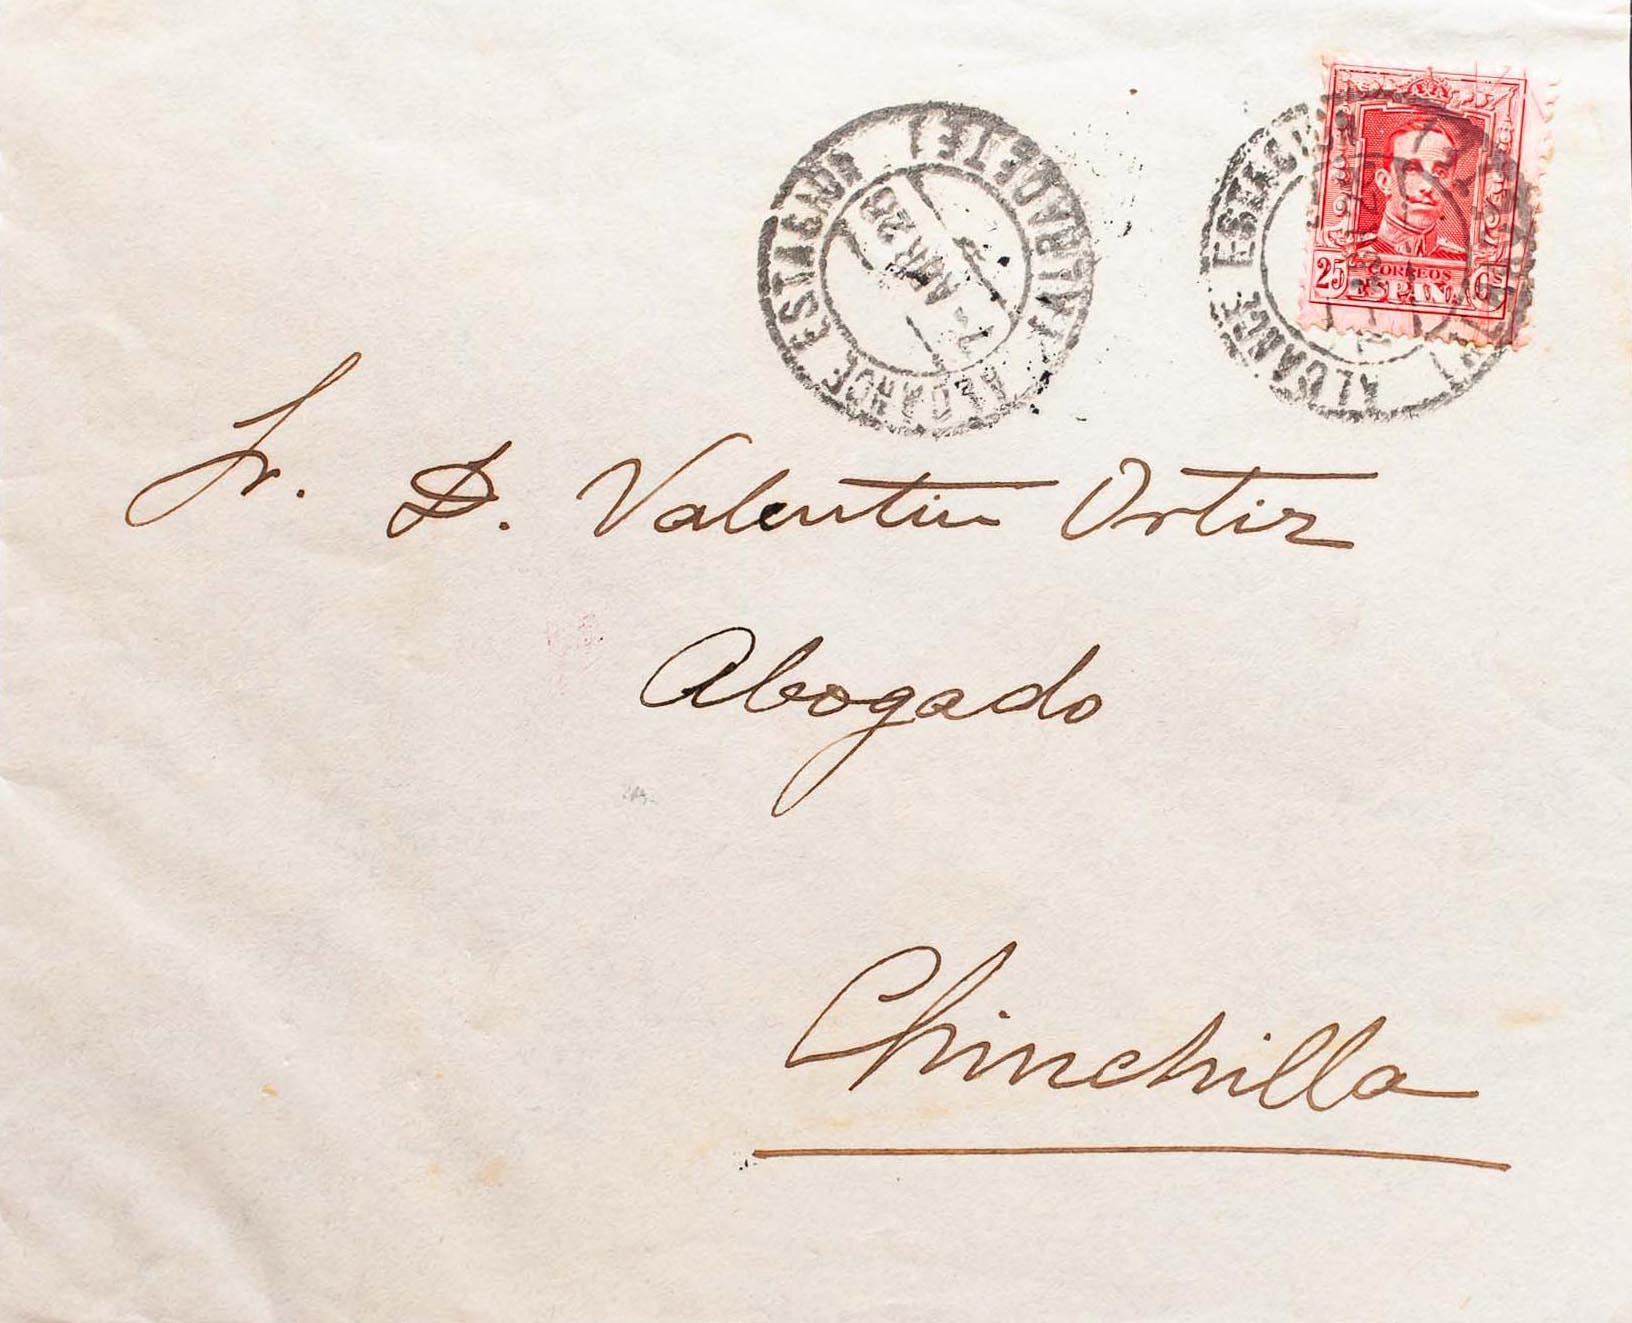 ALCANCE ESTACION
(ALBACETE)
7 ABR 28
ALCANCE ESTACION
CORREOS
25 Cs
ESPAÑA
Sr. D. Valentin Ortiz
Abogado
Chinchilla